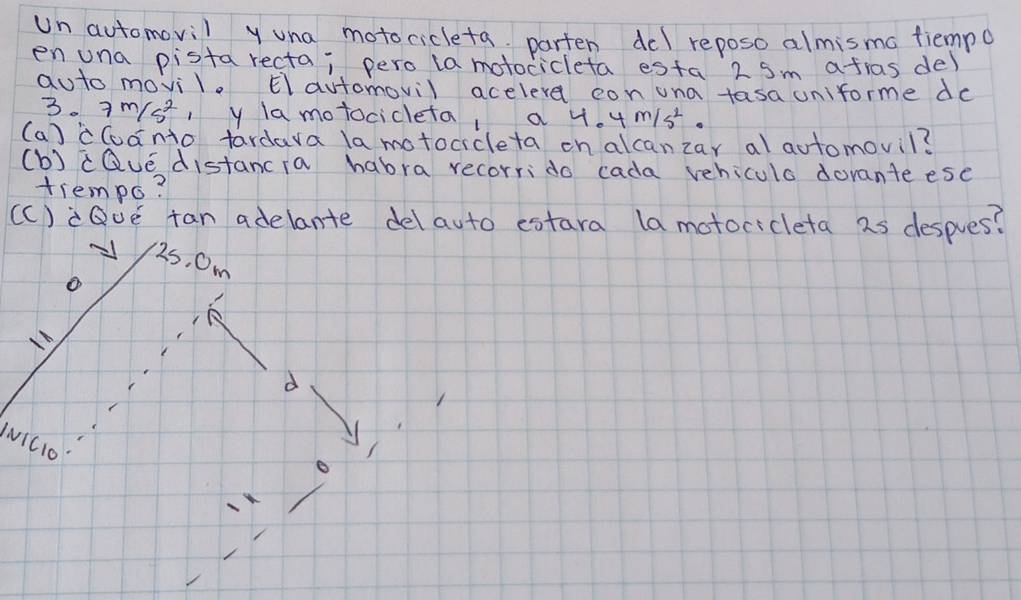 un automovil y una motocicleta. parten del reposo almismo tiempo
en una pista recta; pero la motocicleta esta 25m atras del
auto movil. El automovil acelera con una tasa uniforme de
3.7 m/s², y la motocicleta, a 4.4 m/s².
(a) ¿Cuánto tardara la motocicleta en alcanzar al automovil?
(b) ¿Qué distancia habra recorrido cada vehiculo durante ese
tiempo?
(C) ¿Qué tan adelante del auto estara la motocicleta 2s despues?
25.0m
v
=
0
INICIO
d
v
=
0